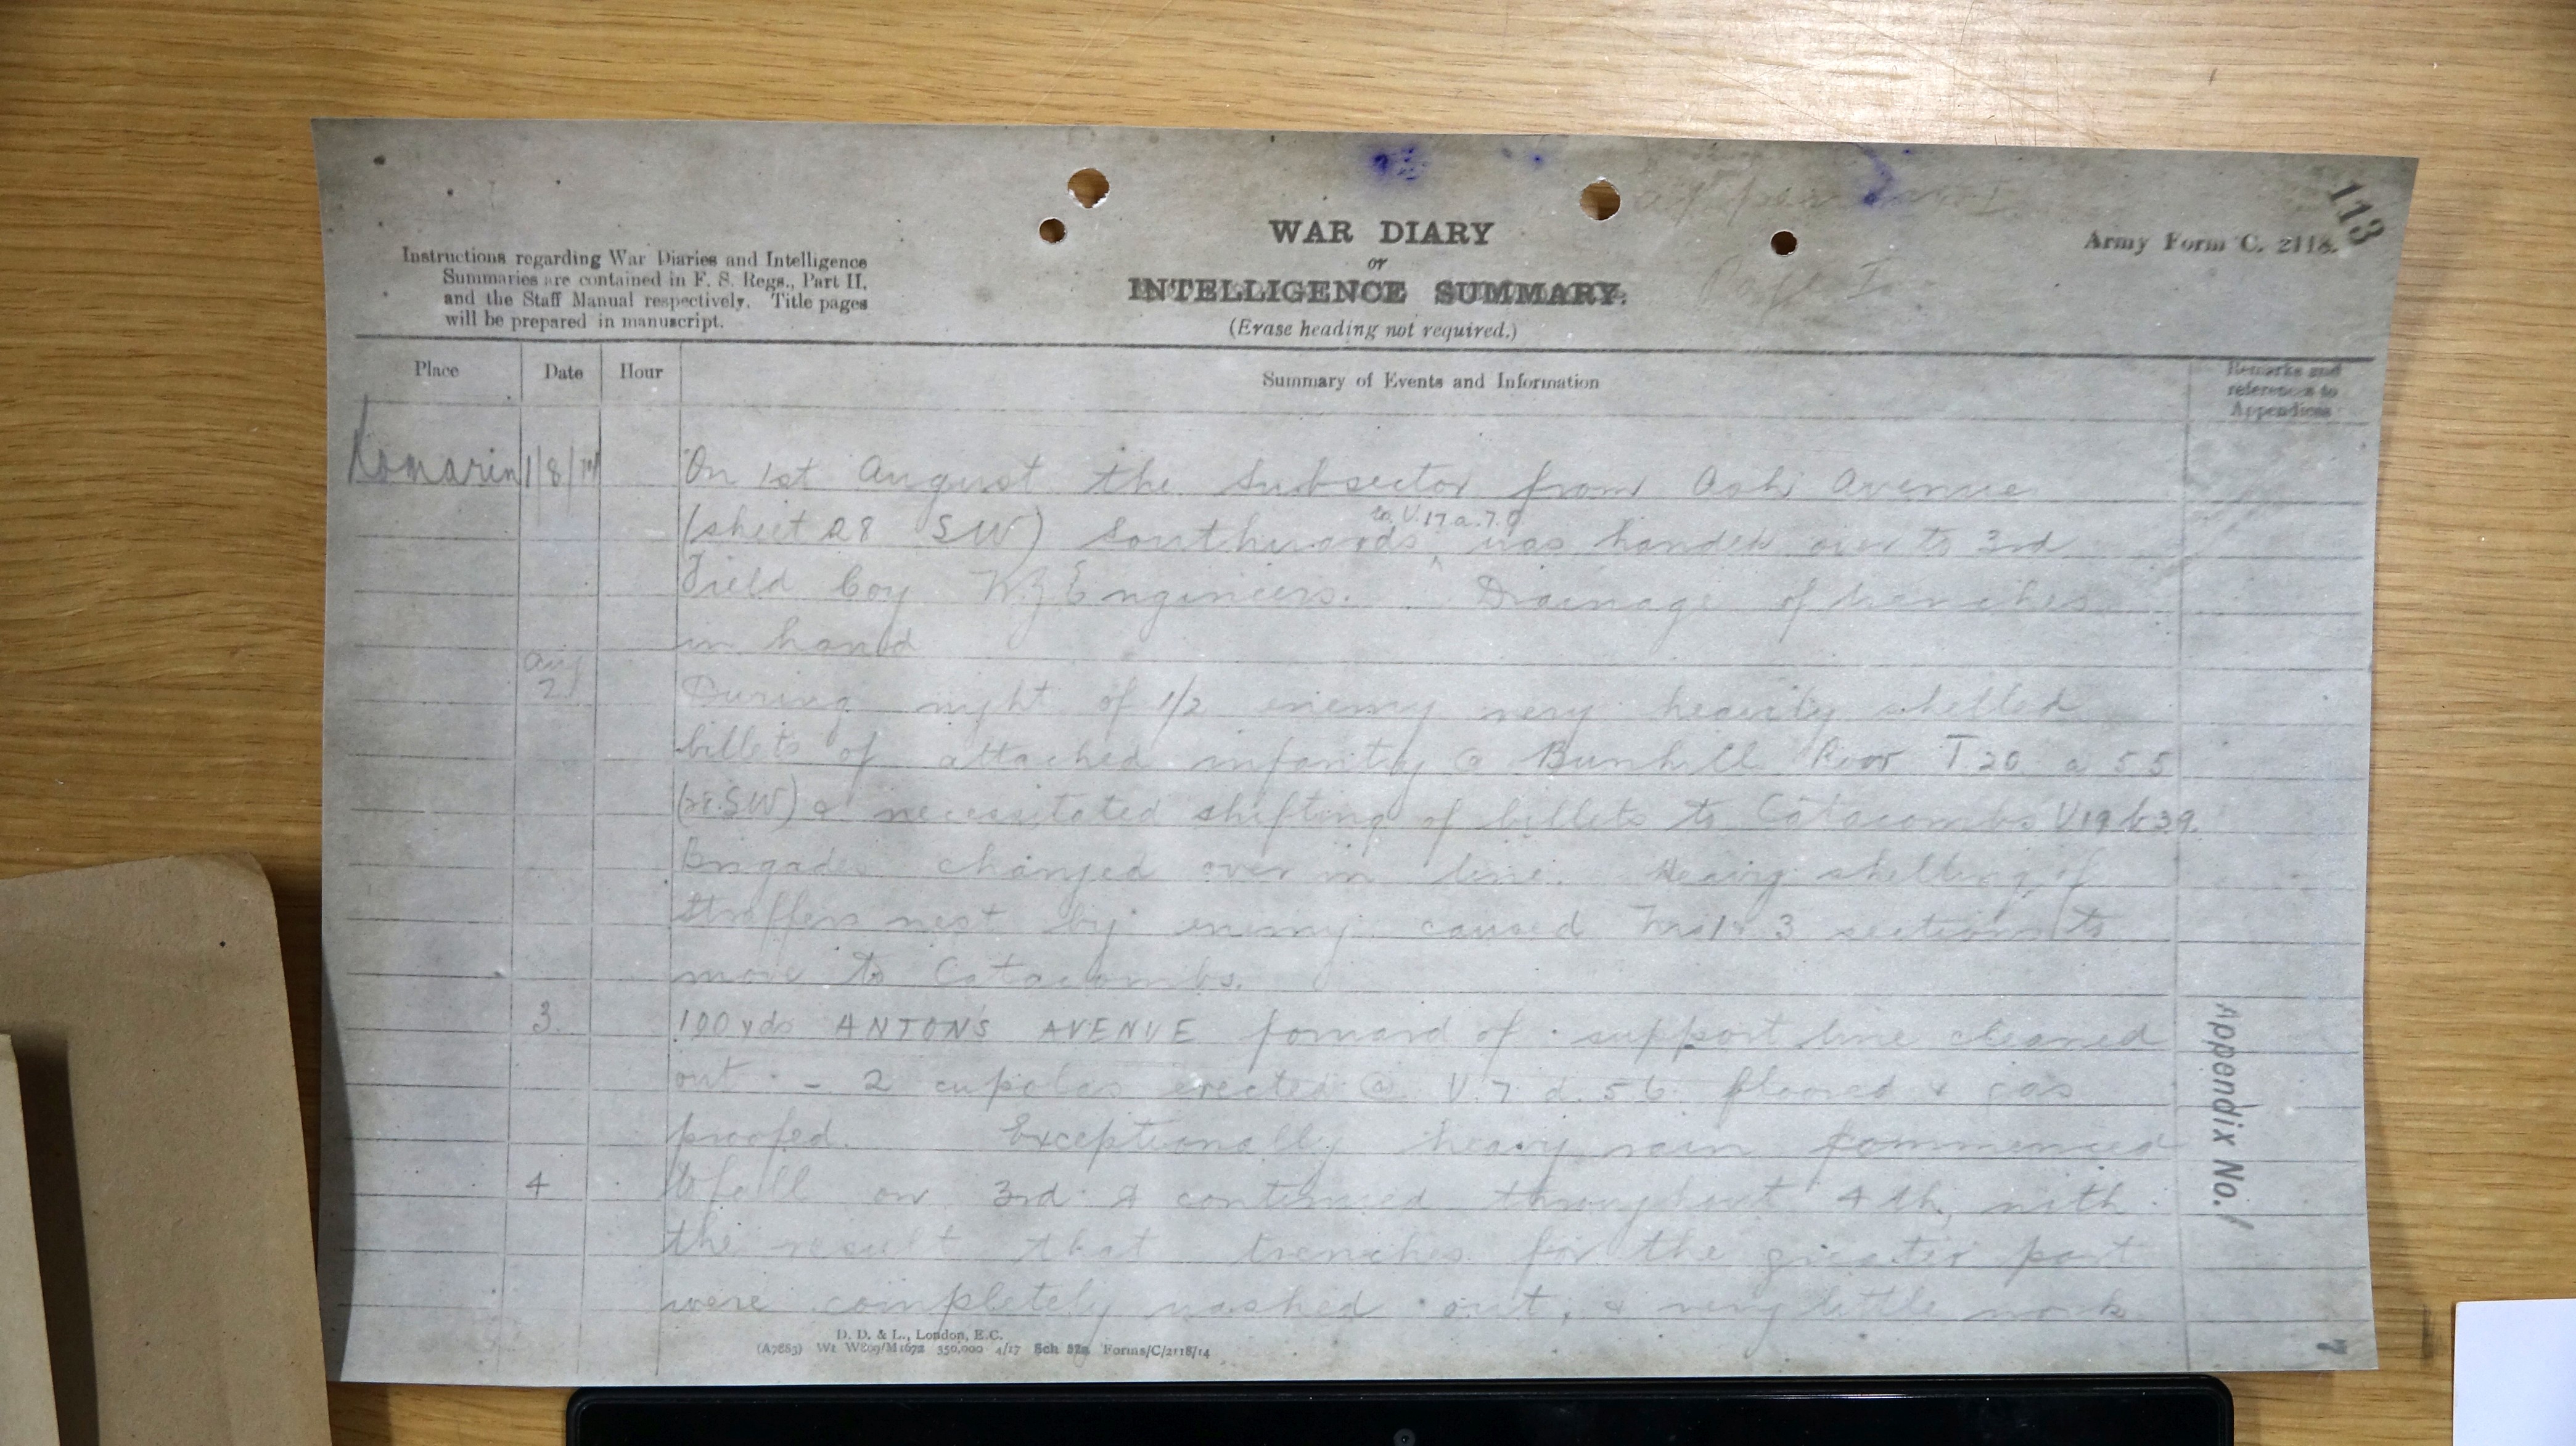 113
Army Form C. 2118.
WAR DIARY
or
INTELLIGENCE SUMMARY.
(Erase heading not required.)
Page I
Instructions regarding War Diaries and Intelligence
Summaries are contained in F. S. Regs., Part II,
and the Staff Manual respectively. Title pages
will be prepared in manuscript.
Place Date Hour Summary of Events and Information Remarks and references to Appendices
Romarin 1/8/17 On 1st August the Subsector from Ash Avenue
to U.17.a.7.0
(sheet 28 SW) Southwards ^ was handed over to 3rd
Field Coy NZ Engineers. Drainage of trenches
in hand
Aug 2 During night of 1/2 enemy very heavily shelled
billets of attached infantry @ Bunhill Row T.20 a 55
(28.SW) & necessitated shifting of billets to Catacombs U19 b 39.
Brigades changed over in line. Heavy shelling of
Straffers nest by enemy caused 3 sections to
move to Catacombs.
3. 100 yds ANTON'S AVENUE forward of support line cleaned
out - 2 cupolas erected @ U.7.d.56 floored & gas
proofed. Exceptionally heavy rain commenced
4 to fall on 3rd & continued throughout 4th, with
the result that trenches for the greater part
were completely washed out, & very little work
Appendix No. 1
D. D. & L., London, E.C.
(A7883) Wt W809/M1672 350,000 4/17 Sch 52a Forms/C/2118/14